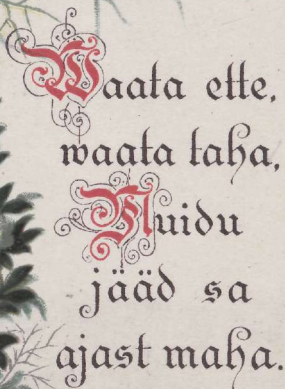 Waata ette,
waata taha,
Muidu
jääd sa
ajast maha.